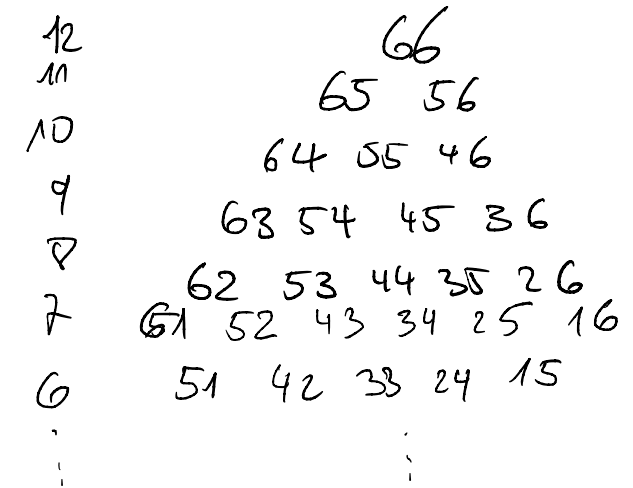 12 66
11 65 56
10 64 55 46
9 63 54 45 36
8 62 53 44 35 26
7 61 52 43 34 25 16
6 51 42 33 24 15